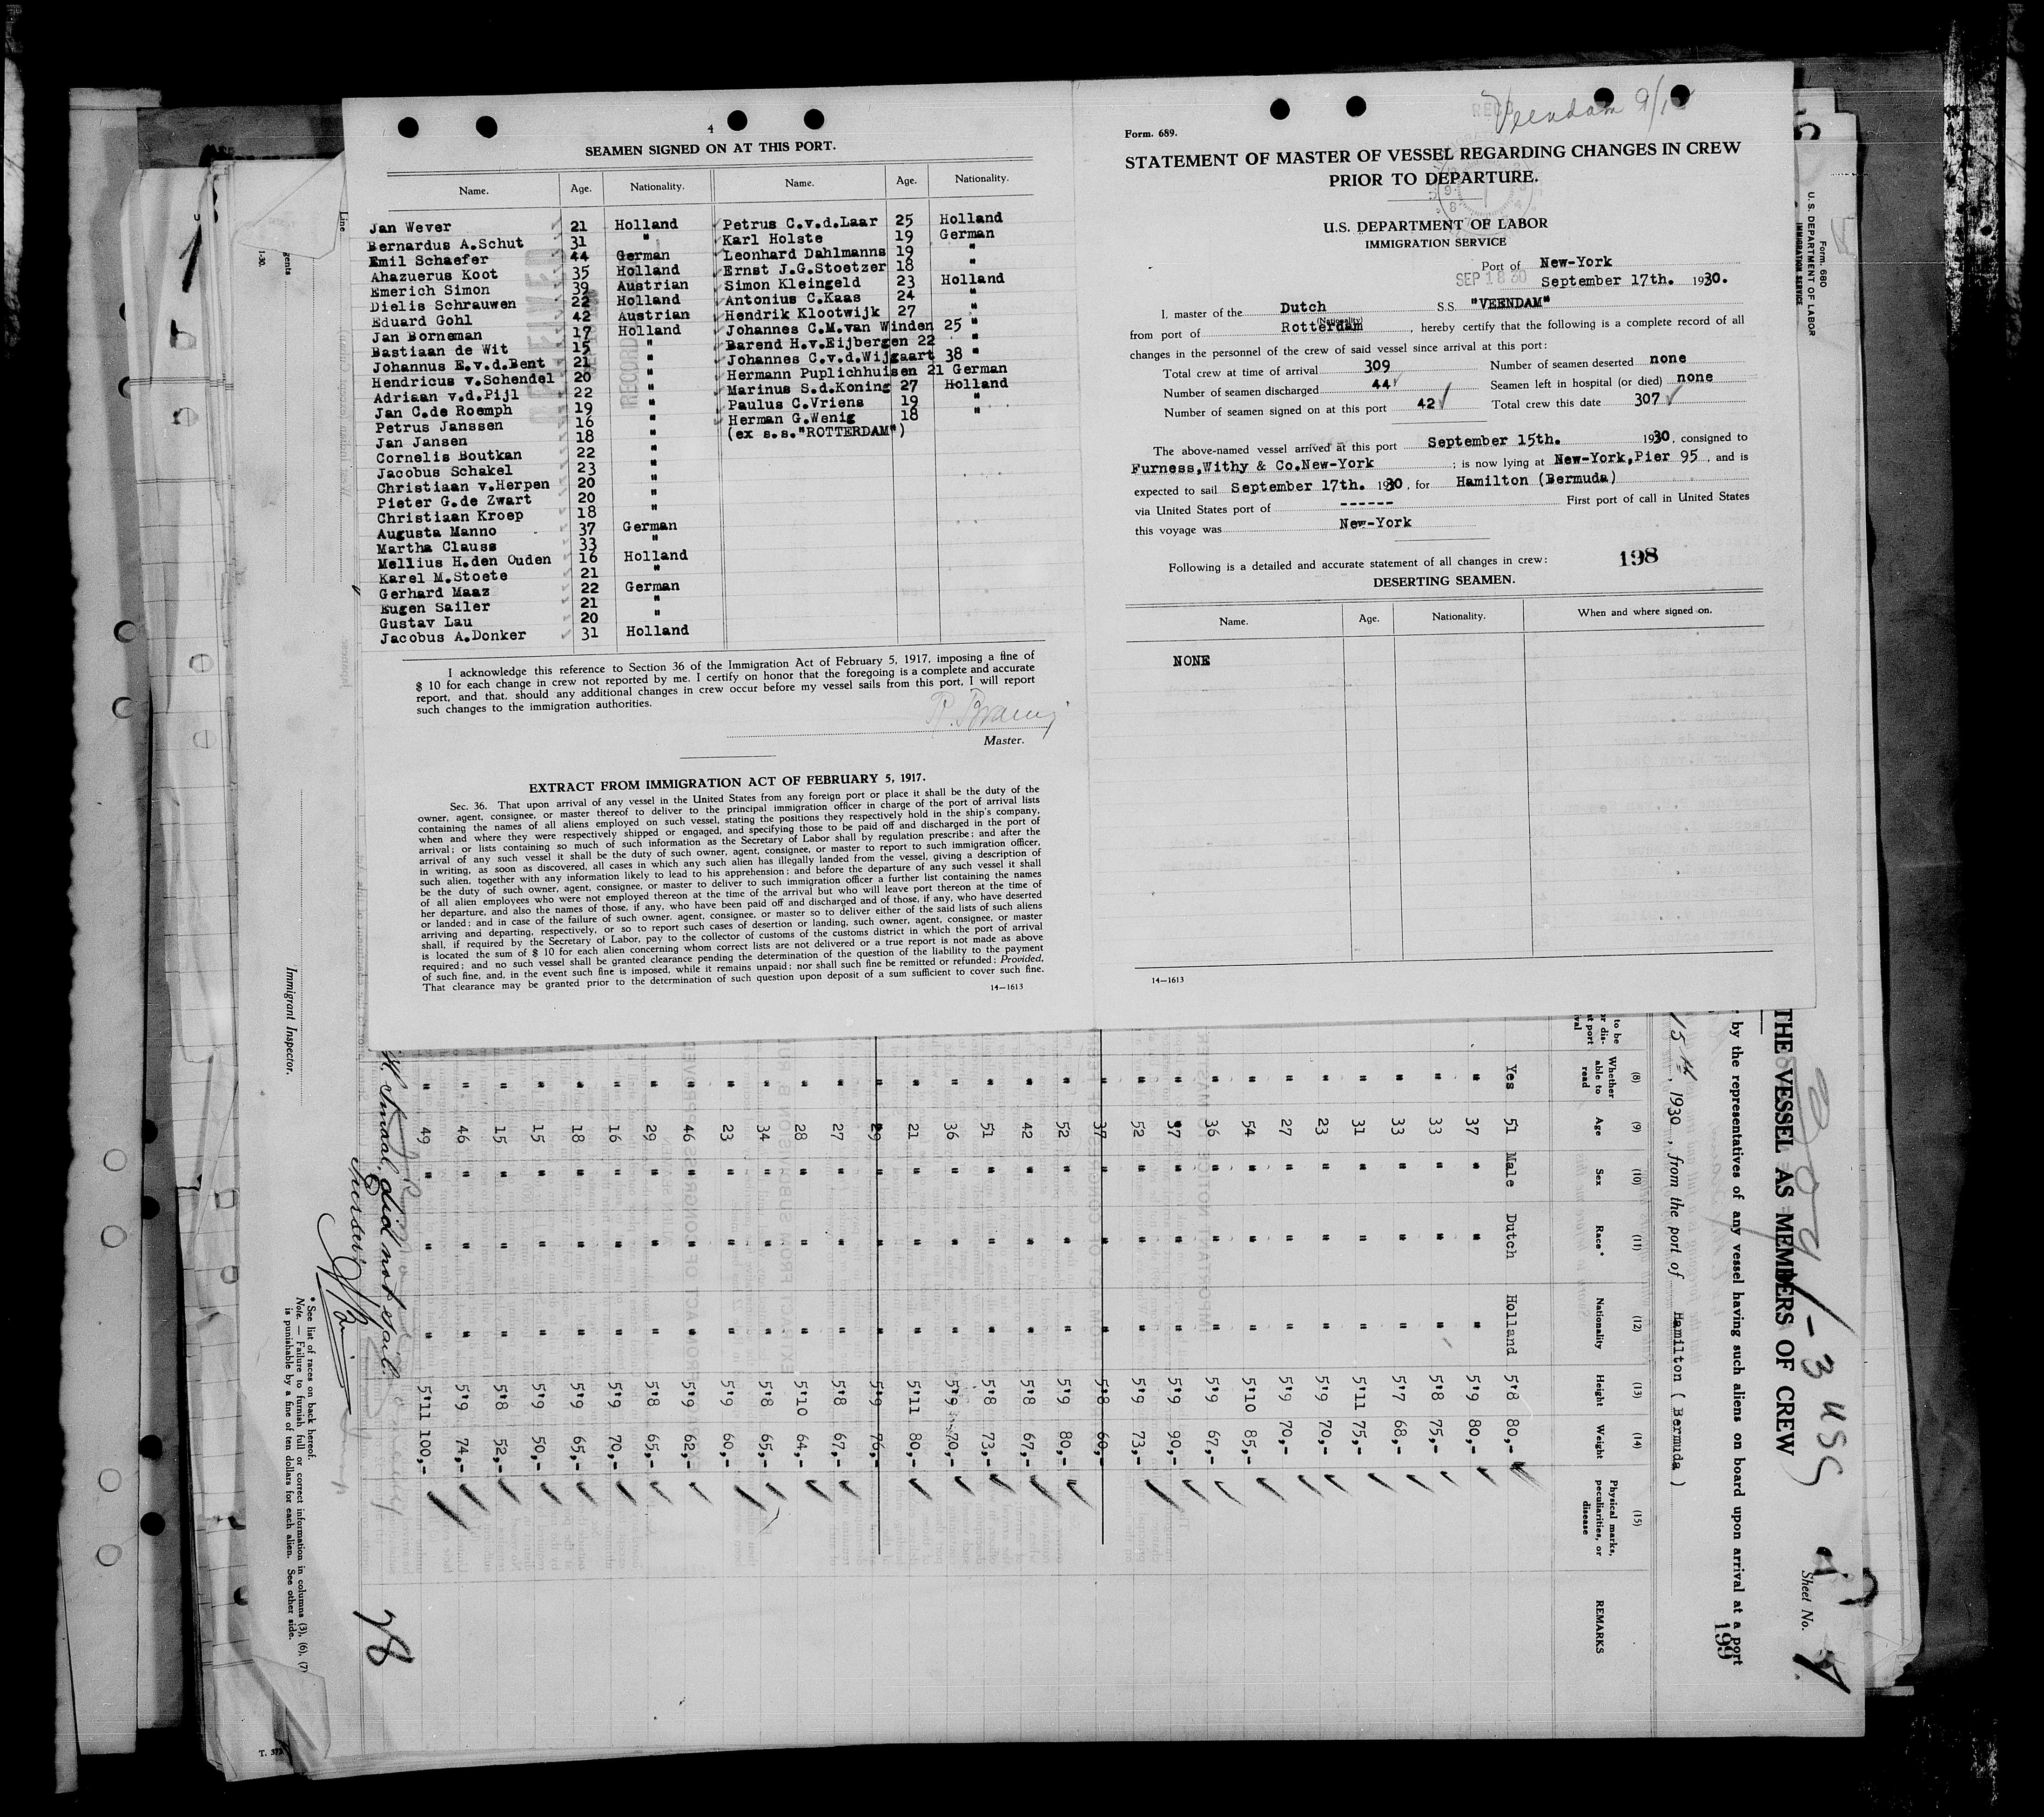 4
SEAMEN SIGNED ON AT THIS PORT.
Name. Age. Nationality. Name. Age. Nationality.
Jan Wever 21 Holland Petrus C.v.d.Laar 25 Holland
Bernardus A.Schut 31 " Karl Holste 19 German
Emil Schaefer 44 German Leonhard Dahlmanns 19 "
Ahazuerus Koot 35 Holland Ernst J.G.Stoetzer 18 "
Emerich Simon 39 Austrian Simon Kleingeld 23 Holland
Dielis Schrauwen 22 Holland Antonius C.Kaas 24 "
Eduard Gohl 42 Austrian Hendrik Klootwijk 27 "
Jan Borneman 17 Holland Johannes C.M.van Winden 25 "
Bastiaan de Wit 15 " Barend H.v.Eijbergen 22 "
Johannus E.v.d.Bent 21 " Johannes C.v.d.Wijgaart 38 "
Hendricus v.Schendel 20 " Hermann Puplichhuisen 21 German
Adriaan v.d.Pijl 22 " Marinus S.d.Koning 27 Holland
Jan C.de Roemph 19 " Paulus C.Vriens 19 "
Petrus Janssen 16 " Herman G.Wenig 18 "
Jan Jansen 18 " (ex s.s."ROTTERDAM")
Cornelis Boutkan 22 "
Jacobus Schakel 23 "
Christiaan v.Herpen 20 "
Pieter G.de Zwart 20 "
Christiaan Kroep 18 "
Augusta Manno 37 German
Martha Clauss 33 "
Mellius H.den Ouden 16 Holland
Karel M.Stoete 21 "
Gerhard Maaz 22 German
Eugen Sailer 21 "
Gustav Lau 20 "
Jacobus A.Donker 31 Holland
I acknowledge this reference to Section 36 of the Immigration Act of February 5, 1917, imposing a fine of
$ 10 for each change in crew not reported by me. I certify on honor that the foregoing is a complete and accurate
report, and that, should any additional changes in crew occur before my vessel sails from this port, I will report
such changes to the immigration authorities.
Master.
EXTRACT FROM IMMIGRATION ACT OF FEBRUARY 5, 1917.
Sec. 36. That upon arrival of any vessel in the United States from any foreign port or place it shall be the duty of the
owner, agent, consignee, or master thereof to deliver to the principal immigration officer in charge of the port of arrival lists
containing the names of all aliens employed on such vessel, stating the positions they respectively hold in the ship's company,
when and where they were respectively shipped or engaged, and specifying those to be paid off and discharged in the port of
arrival; or lists containing so much of such information as the Secretary of Labor shall by regulation prescribe; and after the
arrival of any such vessel it shall be the duty of such owner, agent, consignee, or master to report to such immigration officer,
in writing, as soon as discovered, all cases in which any such alien has illegally landed from the vessel, giving a description of
such alien, together with any information likely to lead to his apprehension; and before the departure of any such vessel it shall
be the duty of such owner, agent, consignee, or master to deliver to such immigration officer a further list containing the names
of all alien employees who were not employed thereon at the time of the arrival but who will leave port thereon at the time of
her departure, and also the names of those, if any, who have been paid off and discharged and of those, if any, who have deserted
or landed; and in case of the failure of such owner, agent, consignee, or master so to deliver either of the said lists of such aliens
arriving and departing, respectively, or so to report such cases of desertion or landing, such owner, agent, consignee, or master
shall, if required by the Secretary of Labor, pay to the collector of customs of the customs district in which the port of arrival
is located the sum of $ 10 for each alien concerning whom correct lists are not delivered or a true report is not made as above
required; and no such vessel shall be granted clearance pending the determination of the question of the liability to the payment
of such fine, and, in the event such fine is imposed, while it remains unpaid; nor shall such fine be remitted or refunded; Provided,
That clearance may be granted prior to the determination of such question upon deposit of a sum sufficient to cover such fine.
14—1613
Veendam
Form. 689.
STATEMENT OF MASTER OF VESSEL REGARDING CHANGES IN CREW
PRIOR TO DEPARTURE.
U.S. DEPARTMENT OF LABOR
IMMIGRATION SERVICE
Port of New-York
SEP 18 30
September 17th. 1930.
I. master of the Dutch S.S. "VEENDAM"
(Nationality)
from port of Rotterdam , hereby certify that the following is a complete record of all
changes in the personnel of the crew of said vessel since arrival at this port:
Total crew at time of arrival 309 Number of seamen deserted none
Number of seamen discharged 44 Seamen left in hospital (or died) none
Number of seamen signed on at this port 42 Total crew this date 307
The above-named vessel arrived at this port September 15th. 1930, consigned to
Furness,Withy & Co.New-York ; is now lying at New-York,Pier 95 , and is
expected to sail September 17th. 1930, for Hamilton (Bermuda)
via United States port of ------ First port of call in United States
this voyage was New-York
Following is a detailed and accurate statement of all changes in crew: 198
DESERTING SEAMEN.
Name. Age. Nationality. When and where signed on.
NONE
14—1613
Form. 680
U. S. DEPARTMENT OF LABOR
IMMIGRATION SERVICE
Sheet No.
THE VESSEL AS MEMBERS OF CREW
by the representatives of any vessel having such aliens on board upon arrival at a port
199
15th , 1930 , from the port of Hamilton ( Bermuda )
(8) (9) (10) (11) (12) (13) (14) (15)
Whether able to read Age Sex Race* Nationality Height Weight Physical marks, peculiarities, or disease REMARKS
Yes 51 Male Dutch Holland 5'8 80,-
" 37 " " " 5'9 80,-
" 33 " " " 5'8 75,-
" 33 " " " 5'7 68,-
" 31 " " " 5'11 75,-
" 23 " " " 5'9 70,-
" 27 " " " 5'9 70,-
" 54 " " " 5'10 85,-
" 36 " " " 5'9 67,-
" 37 " " " 5'9 90,-
" 52 " " " 5'9 73,-
" 37 " " " 5'8 60,-
" 52 " " " 5'9 80,-
" 42 " " " 5'8 67,-
" 51 " " " 5'8 73,-
" 36 " " " 5'9 70,-
" 21 " " " 5'11 80,-
" 29 " " " 5'9 76,-
" 27 " " " 5'8 67,-
" 28 " " " 5'10 64,-
" 34 " " " 5'8 65,-
" 23 " " " 5'9 60,-
" 46 " " " 5'9 62,-
" 29 " " " 5'8 65,-
" 16 " " " 5'9 70,-
" 18 " " " 5'9 65,-
" 15 " " " 5'9 50,-
" 15 " " " 5'8 52,-
" 46 " " " 5'9 74,-
" 49 " " " 5'11 100,-
did not sail.
28
* See list of races on back hereof.
Note. — Failure to furnish full or correct information in columns (3), (6), (7)
is punishable by a fine of ten dollars for each alien. See other side.
Immigrant Inspector.
Line